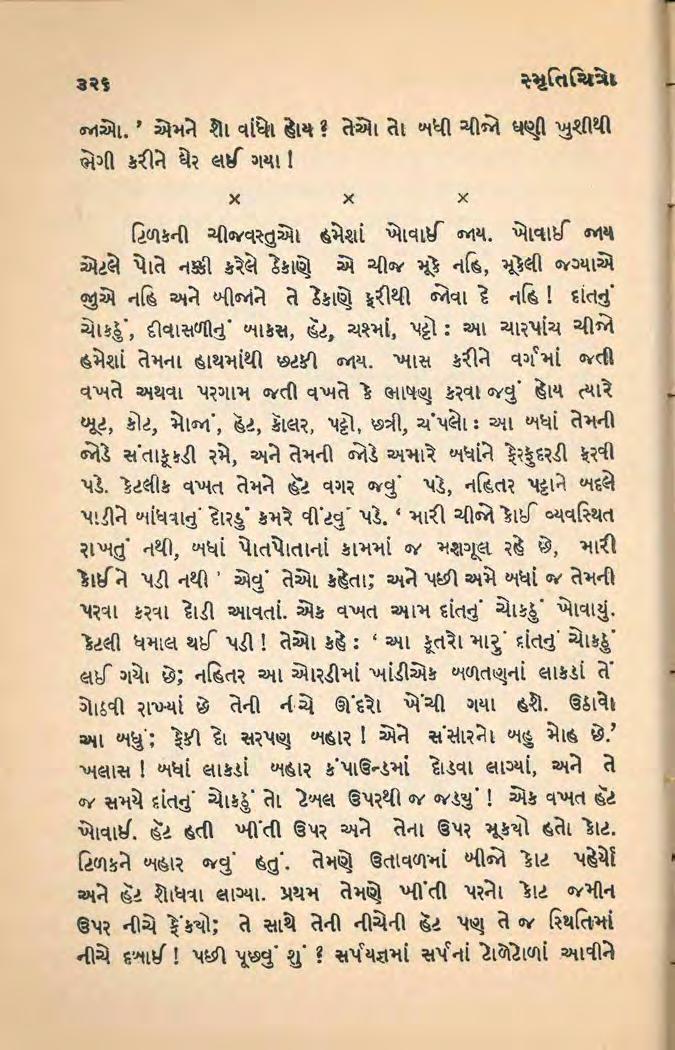 ૩૨૬ સ્મૃતિચિત્રો
જાઓ.’ એમને શો વાંધો હોય ? તેઓ તો બધી ચીજો ઘણી ખુશીથી
ભેગી કરીને ઘેર લઈ ગયા !
× × ×
ટિળકની ચીજવસ્તુઓ હમેશાં ખોવાઈ જાય. ખોવાઈ જાય
એટલે પોતે નક્કી કરેલે ઠેકાણે એ ચીજ મૂકે નહિ, મૂકેલી જગ્યાએ
જુએ નહિ અને બીજાંને તે ઠેકાણે ફરીથી જોવા દે નહિ ! દાંતનું
ચોકઠું, દીવાસળીનું બાકસ, હૅટ, ચશ્માં, પટ્ટો : આ ચારપાંચ ચીજો
હમેશાં તેમના હાથમાંથી છટકી જાય. ખાસ કરીને વર્ગમાં જતી
વખતે અથવા પરગામ જતી વખતે કે ભાષણ કરવા જવું હોય ત્યારે
બૂટ, કોટ, મોજાં, હૅટ, કૉલર, પટ્ટો, છત્રી, ચંપલો : આ બધાં તેમની
જોડે સંતાકૂકડી રમે, અને તેમની જોડે અમારે બધાંને ફેરફુદરડી ફરવી
પડે. કેટલીક વખત તેમને હૅટ વગર જવું પડે, નહિતર પટ્ટાને બદલે
પાડીને બાંધવાનું દોરડું કમરે વીંટવું પડે. ‘ મારી ચીજો કોઈ વ્યવસ્થિત
રાખતું નથી, બધાં પોતપોતાનાં કામમાં જ મશગૂલ રહે છે, મારી
કોઈને પડી નથી ’ એવું તેઓ કહેતા; અને પછી અમે બધાં જ તેમની
પરવા કરવા દોડી આવતાં. એક વખત આમ દાંતનું ચોકઠું ખોવાયું.
કેટલી ધમાલ થઈ પડી ! તેઓ કહે : ‘ આ કૂતરો મારું દાંતનું ચોકઠું
લઈ ગયો છે; નહિતર આ ઓરડીમાં ખાંડીએક બળતણનાં લાકડાં તેં
ગોઠવી રાખ્યાં છે તેની નીચે ઊંદરો ખેંચી ગયા હશે. ઉઠાવો
આ બધું; ફેંકી દો સરપણ બહાર ! એને સંસારનો બહુ મોહ છે.’
ખલાસ ! બધાં લાકડાં બહાર કંપાઉન્ડમાં દોડવા લાગ્યાં, અને તે
જ સમયે દાંતનું ચોકઠું તો ટેબલ ઉપરથી જ જડ્યું ! એક વખત હૅટ
ખોવાઈ. હૅટ હતી ખીંતી ઉપર અને તેના ઉપર મૂક્યો હતો કોટ.
ટિળકને બહાર જવું હતું. તેમણે ઉતાવળમાં બીજો કોટ પહેર્યો
અને હૅટ શોધવા લાગ્યા. પ્રથમ તેમણે ખીંતી પરનો કોટ જમીન
ઉપર નીચે ફેંક્યો; તે સાથે તેની નીચેની હૅટ પણ તે જ સ્થિતિમાં
નીચે દબાઈ ! પછી પૂછવું શું ? સર્પયજ્ઞમાં સર્પનાં ટોળેટોળાં આવીને